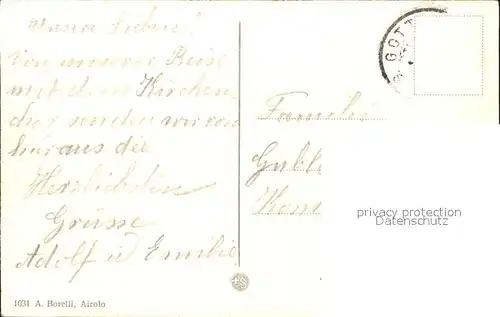 Unsere Lieben!
Von unserer Reise
mit dem Kirchen
chor senden wir von
hier aus die
Herzlichsten
Grüsse
Adolf u Emilie
GOTT
Familie
privacy protection
Datenschutz
1031 A. Borelli, Airolo